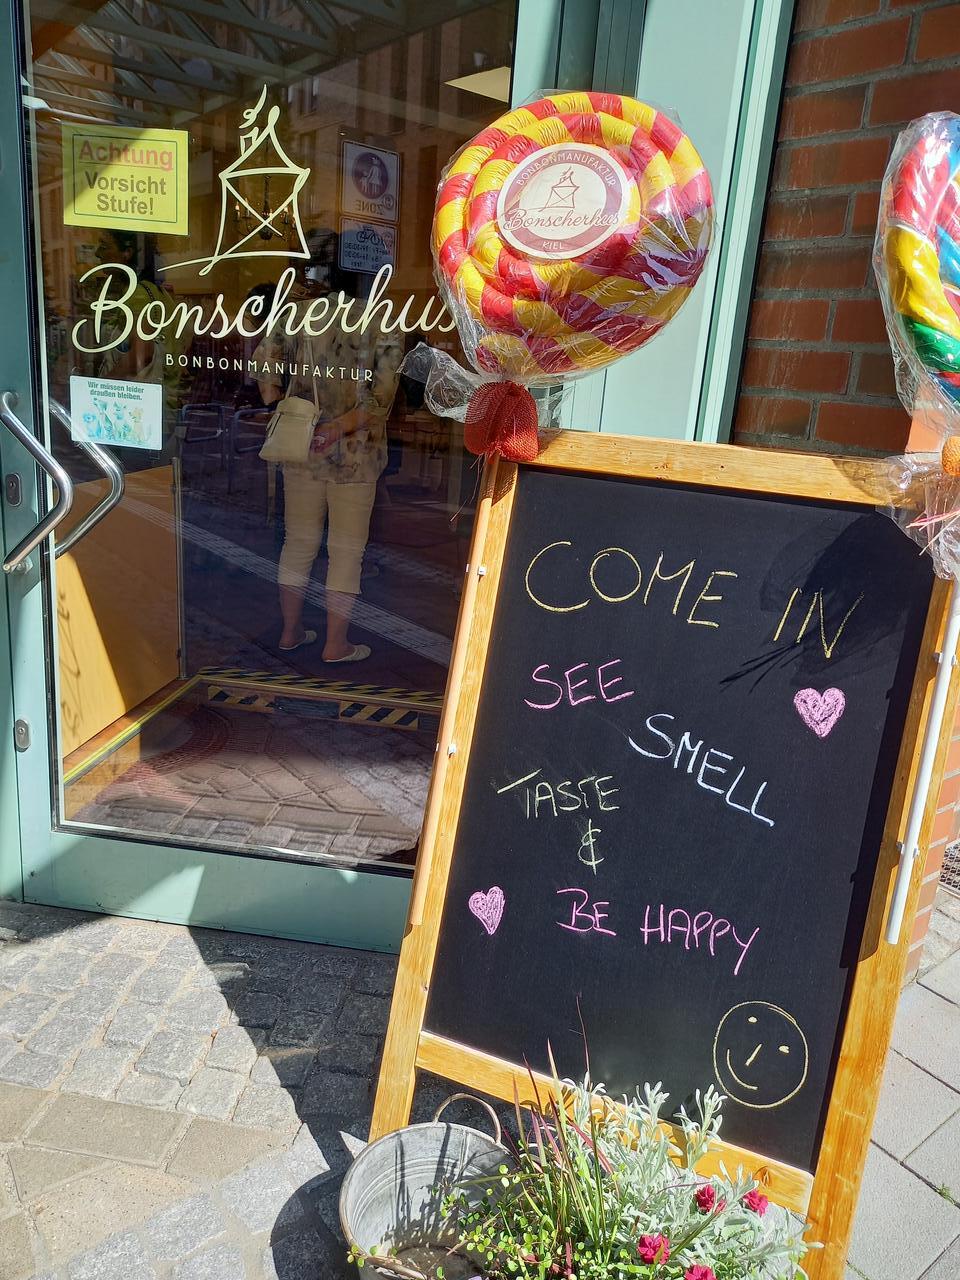 Achtung
Vorsicht
Stufe!
Bonscherhus
BONBONMANUFAKTUR
Wir müssen leider
draußen bleiben.
ZONE
BONBONMANUFAKTUR
Bonscherhus
KIEL
COME IN
SEE
SMELL
TASTE
&
BE HAPPY